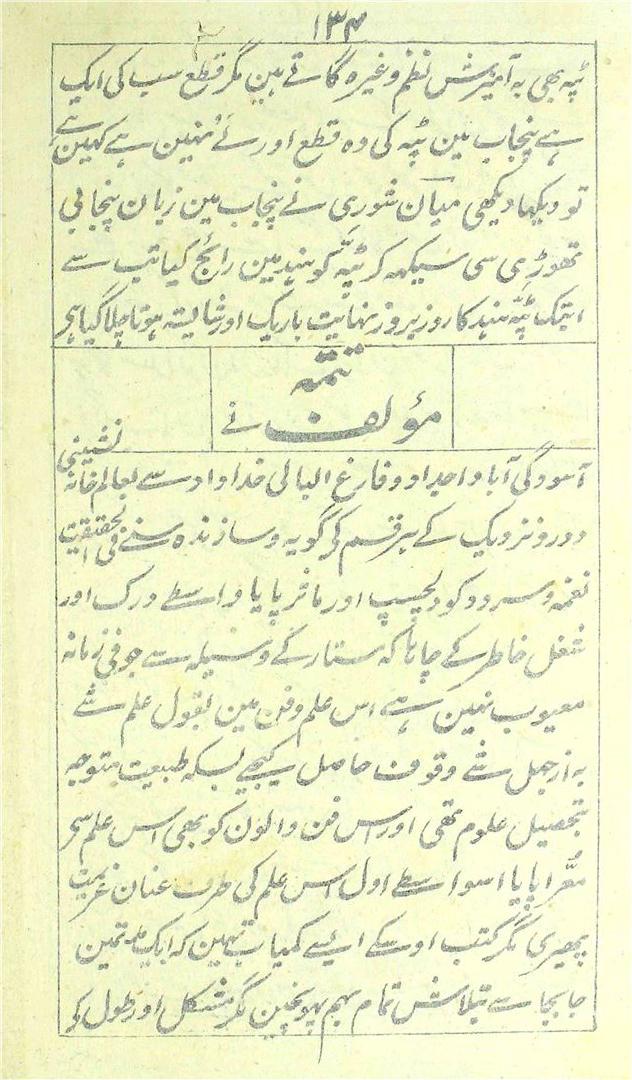 ۱۳۴
ٹپہ بھی بہ آمیزش نظم وغیرہ گاتے ہین مگر قطع سب کی ایک
ہے پنجاب مین ٹپہ کی وہ قطع اور نے نہین ہے کہین ہے
تو دیکھا دیکھی میان شوری نے پنجاب مین زبان پنجابی
تھوڑی سی سیکھہ کر ٹپہ کو ہند مین رائج کیا تب سے
ابتک ٹپہ ہند کا روز بروز نہایت باریک اور شایستہ ہوتا چلا گیا ہے
تتمہ
مؤلف نے
آسودگی آبا و اجداد و فارغ البالی خدا داد سے بعالم خانہ نشینی
دور و نزدیک کے ہر قسم کے گویہ و سازندہ سنے فی الحقیقت
نغمہ و سرود کو دلچسپ اور ماثر پایا واسطے درک اور
شغل خاطر کے چاہا کہ ستار کے وسیلہ سے جو فی زمانہ
معیوب نہین ہے اس علم و فن مین بقول علم شے
بہ از جہل شے وقوف حاصل کیجیے بسکہ طبیعت متوجہ
بتحصیل علوم تھی اور اس فن والون کو بھی اس علم سے
معرا پایا اسواسطے اول اس علم کی طرف عنان عزیمت
پھیری مگر کتب اوسکے ایسے کمیاب نہین کہ ایک
جابجا سے بتلاش تمام بہم پہونچین مگر مشکل اور طول کہ